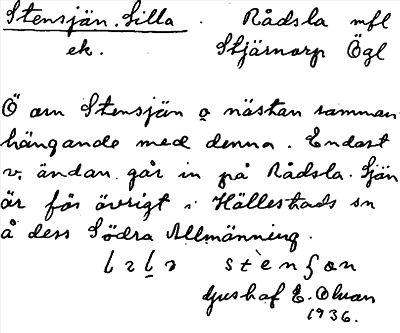 Stensjän. Lilla . Rådsla mfl
ek. Stjärnorp Ögl
Ö om Stensjän o nästan samman
hängande med denna. Endast
v. ändan går in på Rådsla. Sjän
är för övrigt i Hällestads sn
å dess Södra Allmänning.
stènʃɔn
Gustaf E. Olson
1936.